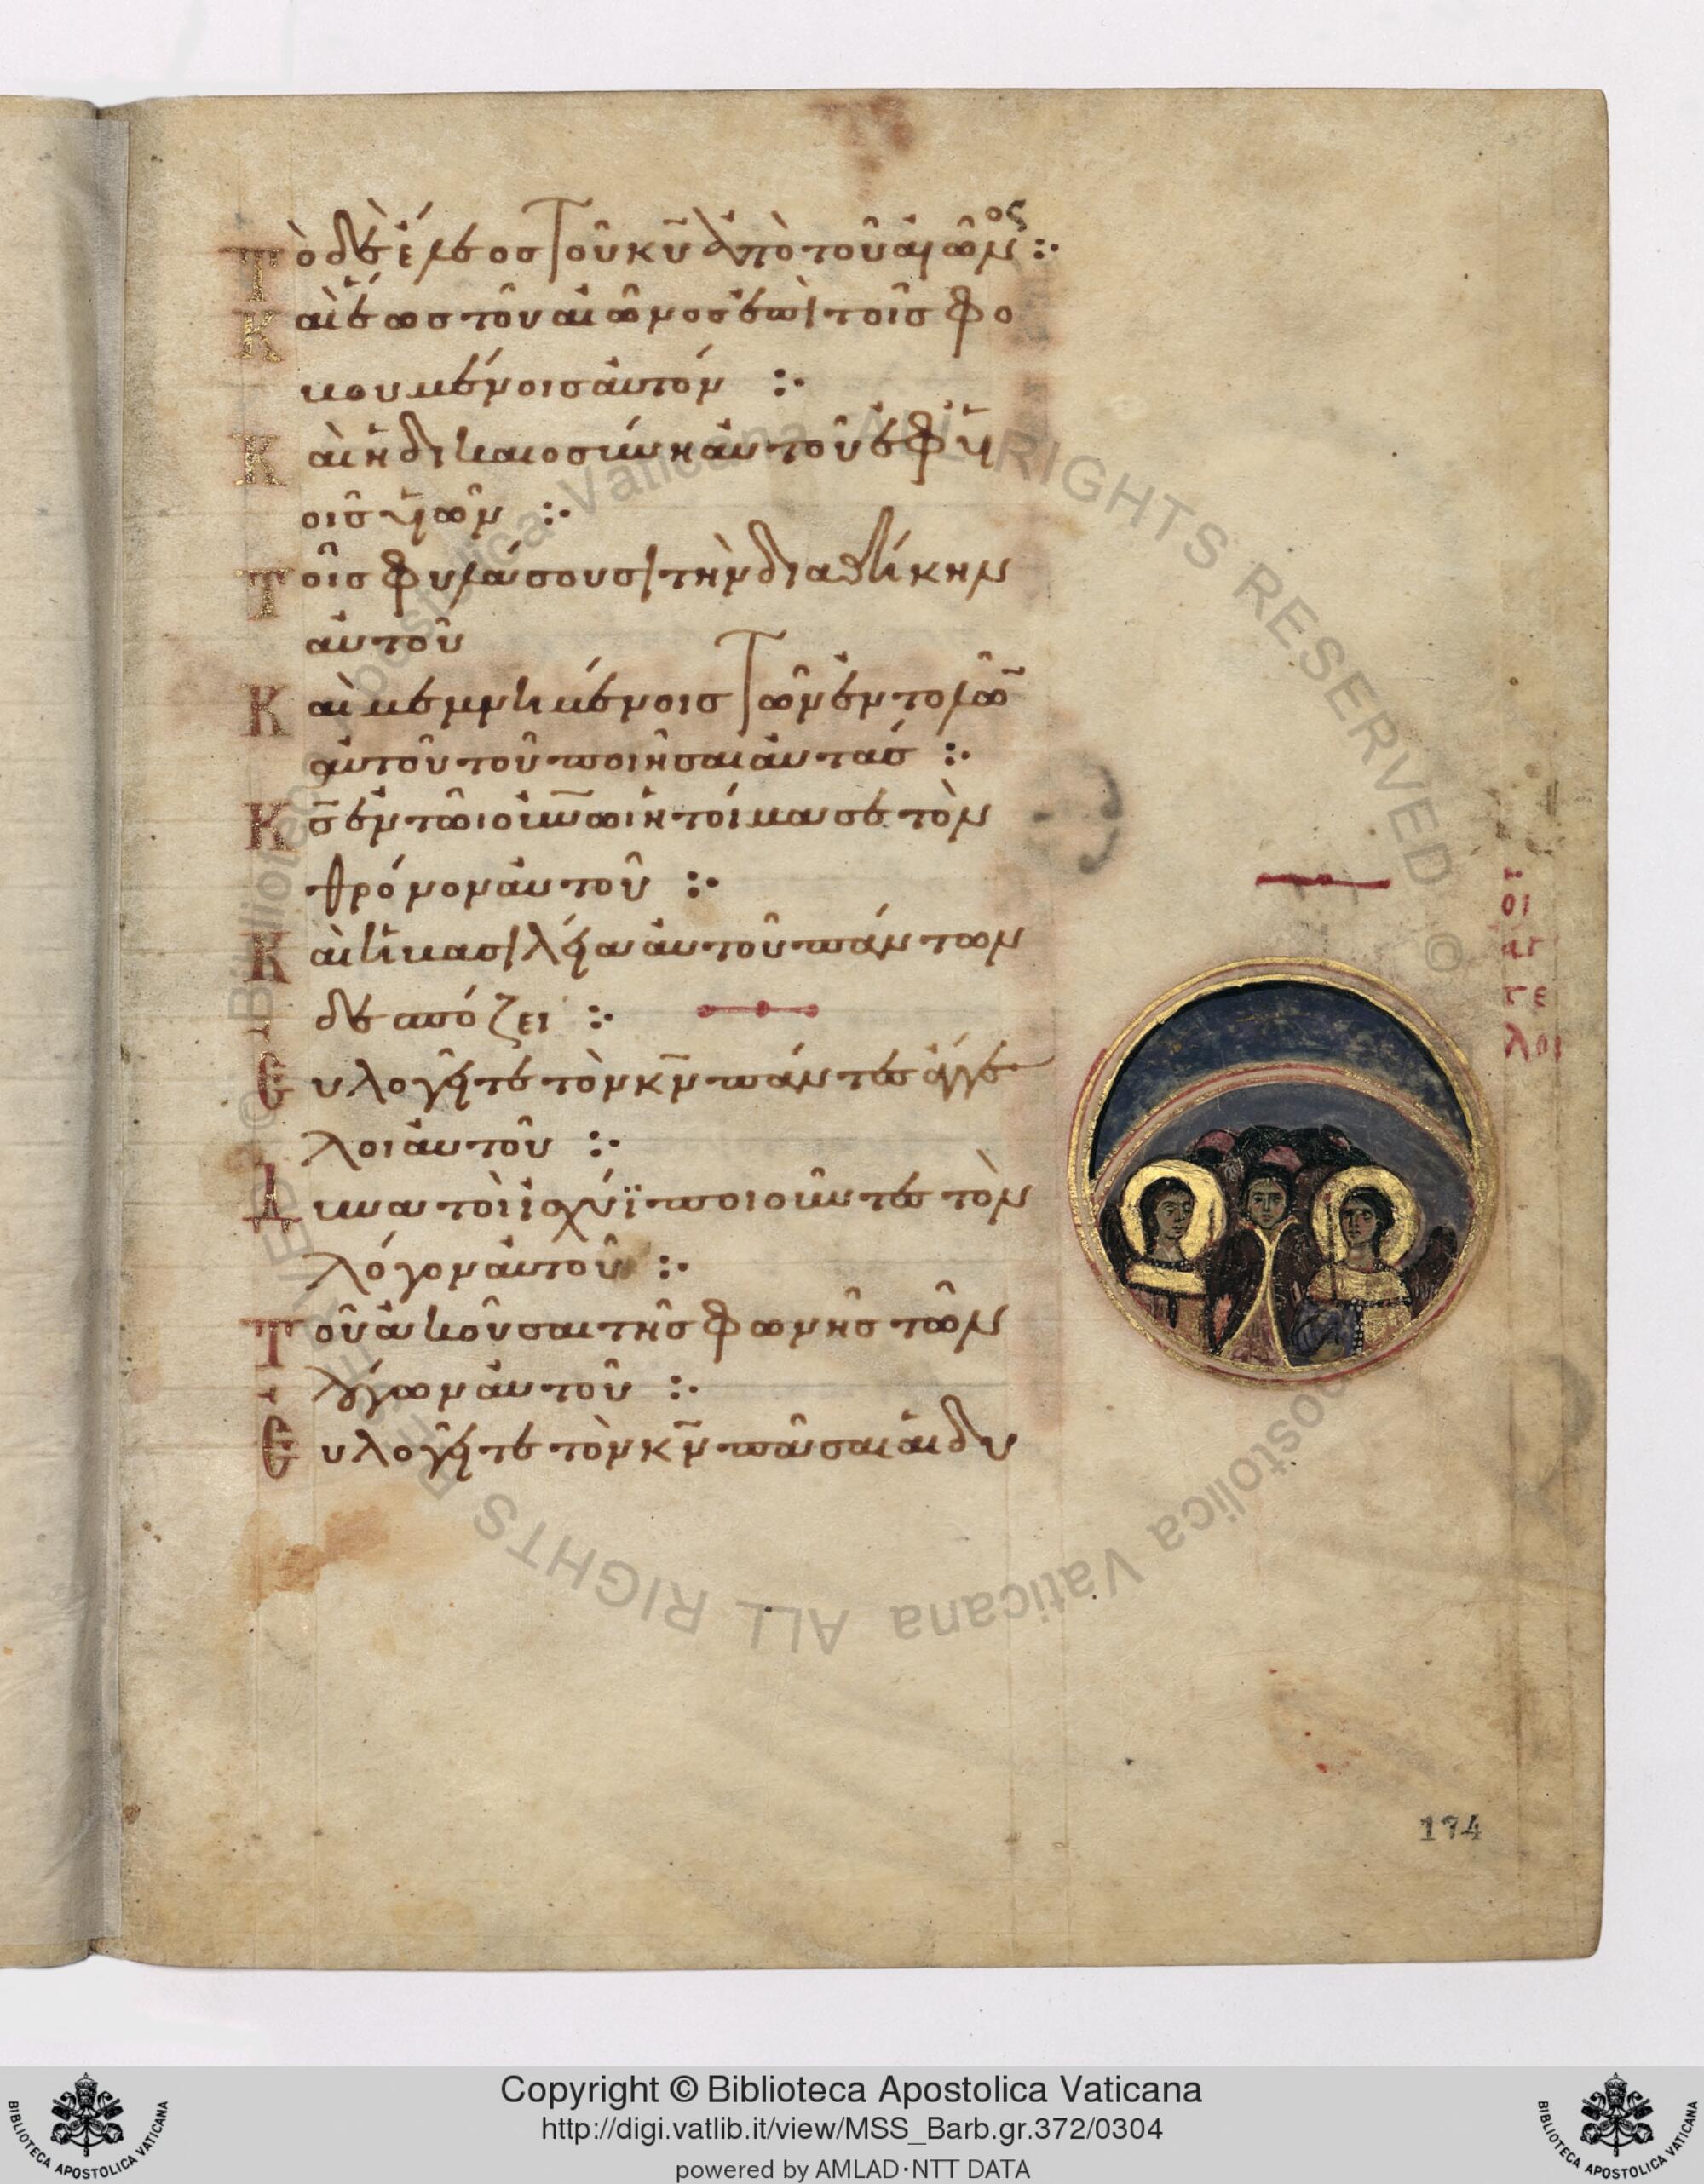 Τὸ δὲ ἔλεος τοῦ κῦ ἀπὸ τοῦ αἰῶνος :·
Καὶ ἕως τοῦ αἰῶνος ἐπὶ τοῖς φο
βουμένοις αὐτόν :·
Καὶ ἡ δικαιοσύνη αὐτοῦ ἐφ' υἱ
οῖς υἱῶν :·
Τοῖς φυλάσουσι τὴν διαθήκην
αὐτοῦ
Καὶ μεμνημένοις τῶν ἐντολῶ
αὐτοῦ τοῦ ποιῆσαι αὐτάς :·
Κς ἐν τῶι οὐνῶι ἡτοίμασε τὸν
θρόνον αὐτοῦ :·
Καὶ ἡ βασιλεία αὐτοῦ πάντων
δεσπόζει :·
Εὐλογεῖτε τὸν κν πάντες ἄγγε
λοι αὐτοῦ :·
Δυνατοὶ ἰσχύϊ ποιοῦντες τὸν
λόγον αὐτοῦ :·
Τοῦ ἀκοῦσαι τῆς φωνῆς τῶν
λόγων αὐτοῦ :·
Εὐλογεῖτε τὸν κν πᾶσαι αἱ δυ
οι
αγ
γε
λοι
174
Biblioteca Apostolica Vaticana ALL RIGHTS RESERVED ©
Copyright © Biblioteca Apostolica Vaticana
http://digi.vatlib.it/view/MSS_Barb.gr.372/0304
powered by AMLAD·NTT DATA
BIBLIOTECA APOSTOLICA VATICANA
BIBLIOTECA APOSTOLICA VATICANA